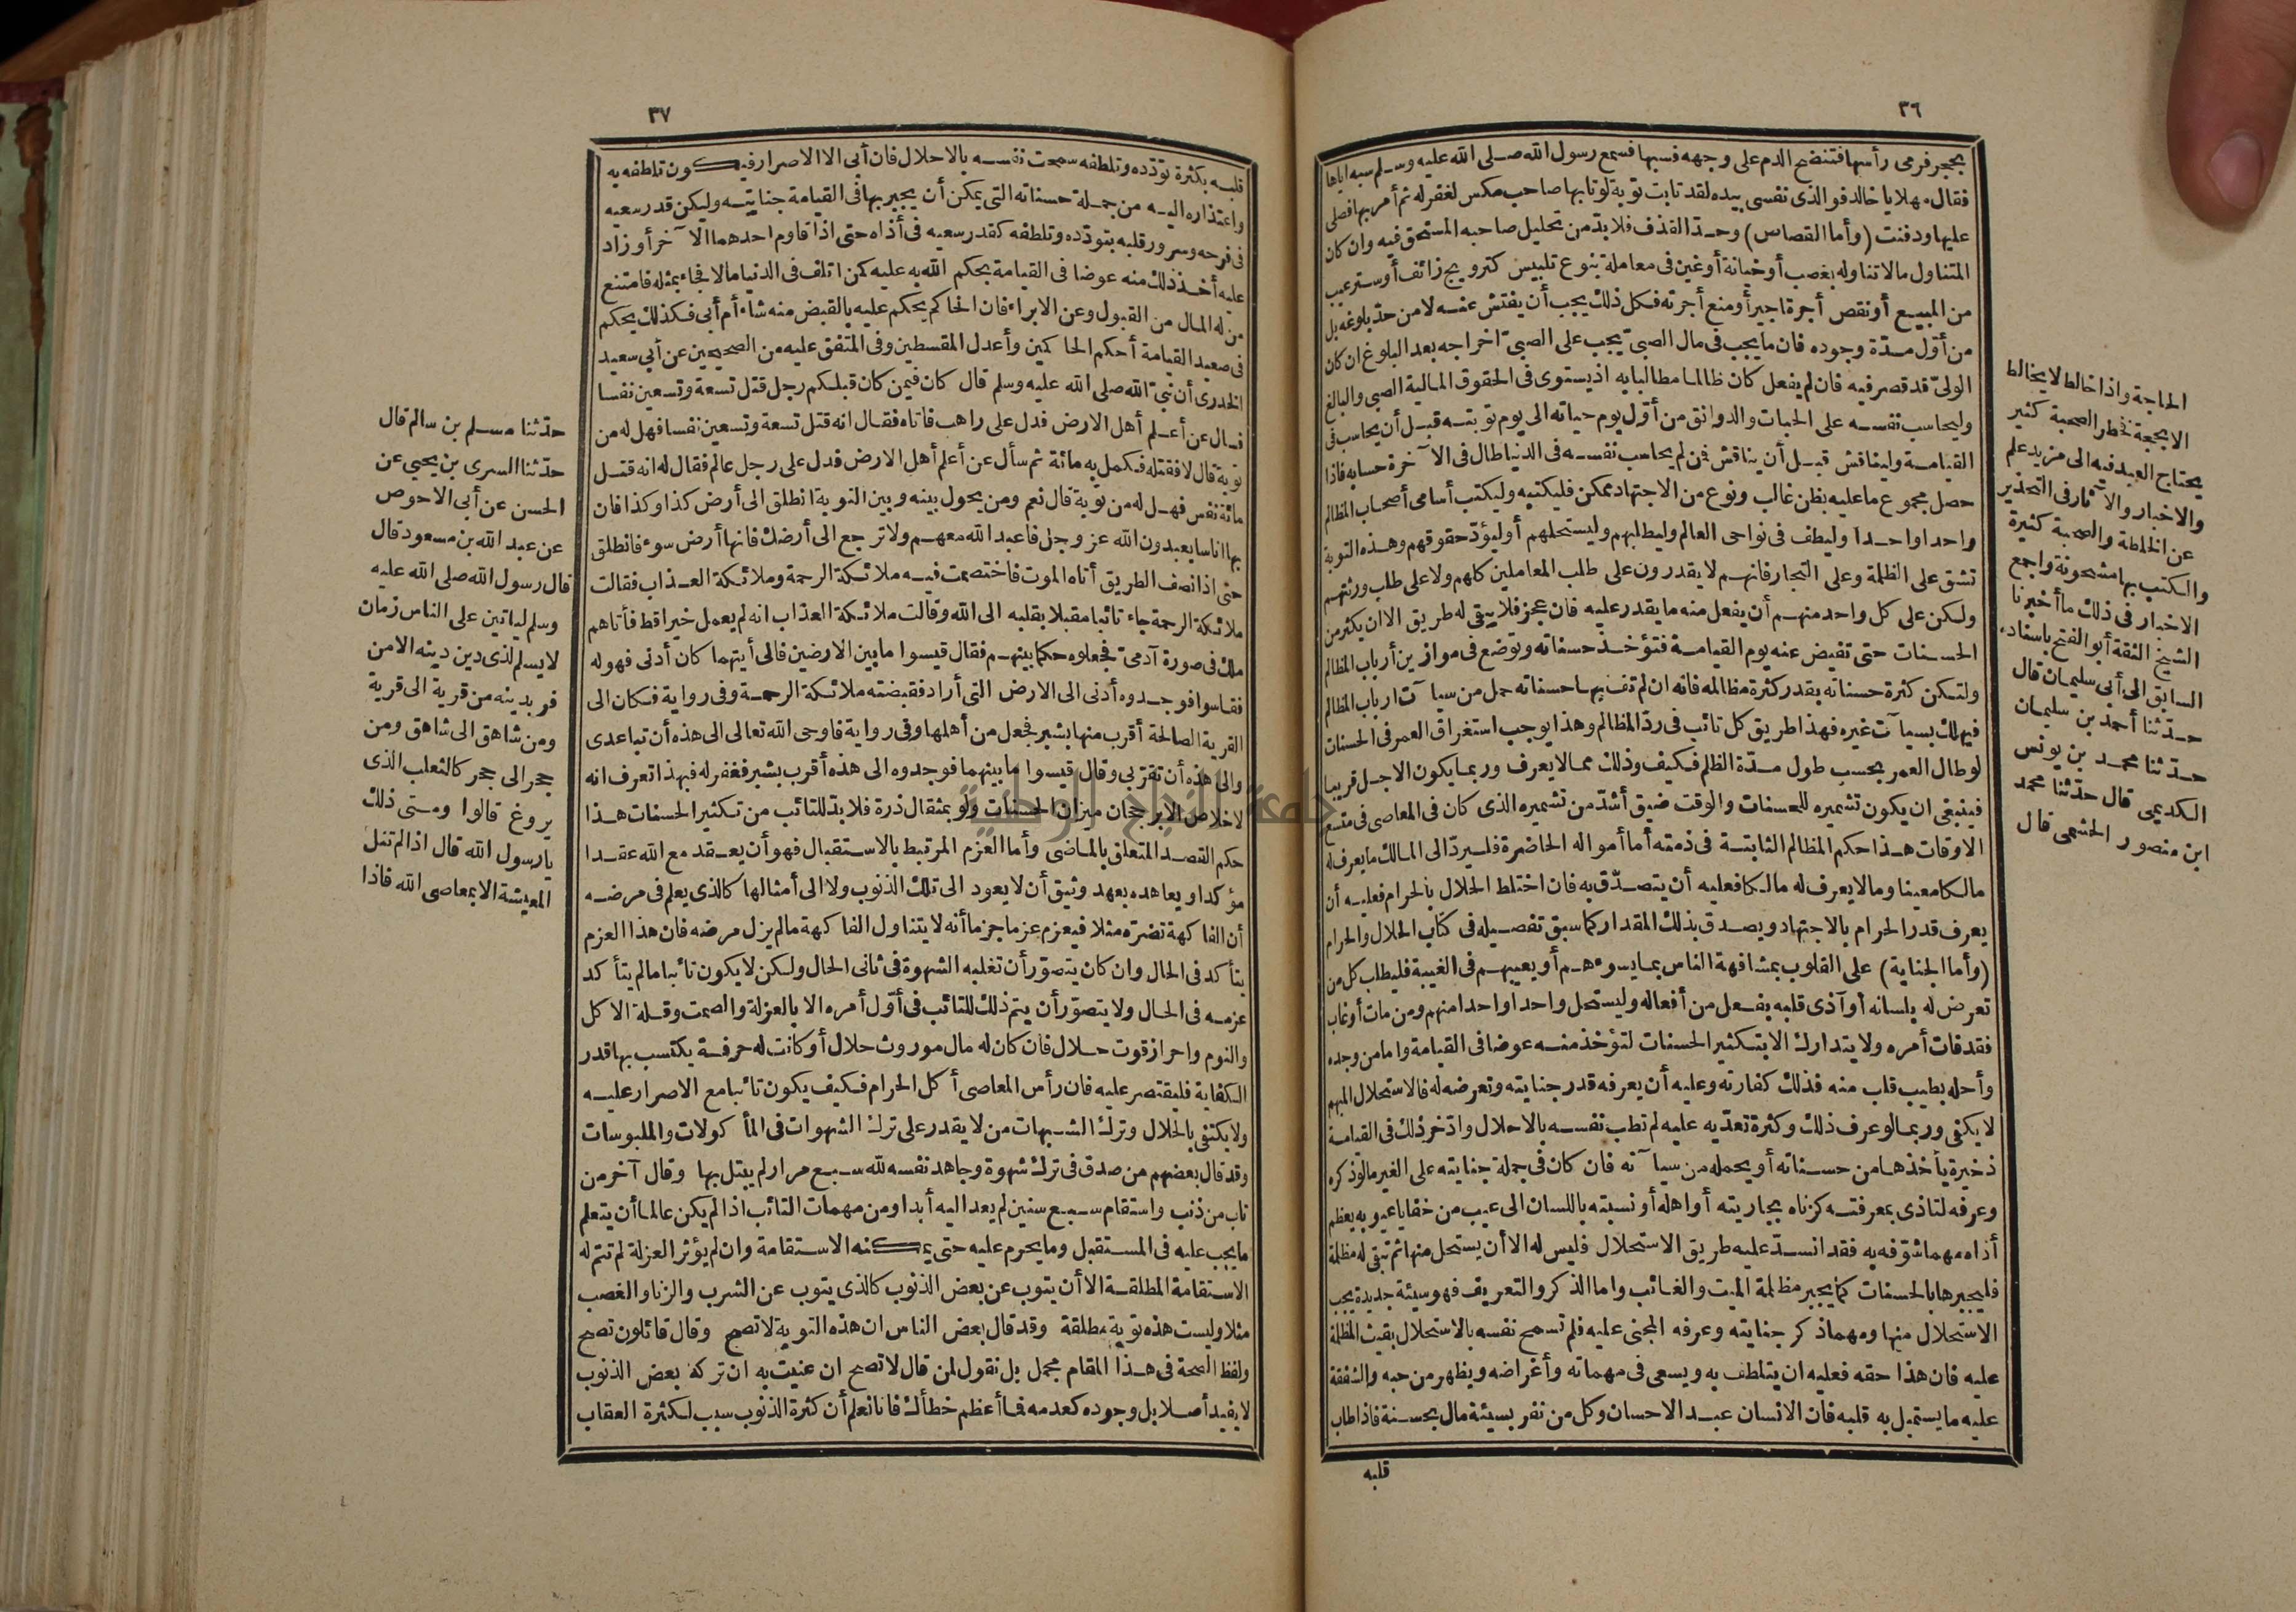 ٣٦
بحجر فرمى رأسها فتنضح الدم على وجهه فسبها فسمع رسول الله صلى الله عليه وسلم سبه اياها
فقال مهلا يا خالد فوالذى نفسى بيده لقد تابت توبة لو تابها صاحب مكس لغفر له ثم أمر بها فصلى
عليها ودفنت (وأما القصاص) وحدّ القذف فلا بدّ من تحليل صاحبه المستحق فيه وان كان
المتناول مالا تناوله بغصب أو خيانة أو غبن فى معاملة بنوع تلبيس كترويج زائف أو ستر عيب
من المبيع أو نقص أجرة اجير أو منع أجرته فكل ذلك يجب أن يفتش عنه لا من حدّ بلوغه بل
من أوّل مدّة وجوده فان ما يجب فى مال الصبىّ يجب على الصبىّ اخراجه بعد البلوغ ان كان
الولىّ قد قصر فيه فان لم يفعل كان ظالما مطالبا به اذ يستوى فى الحقوق المالية الصبى والبالغ
وليحاسب نفسه على الحبات والدوانق من أوّل يوم حياته الى يوم توبته قبل أن يحاسب فى
القيامة وليناقش قبل أن يناقش فمن لم يحاسب نفسه فى الدنيا طال فى الآخرة حسابه فاذا
حصل مجموع ما عليه بظن غالب ونوع من الاجتهاد ممكن فليكتبه وليكتب أسامى أصحاب المظالم
واحدا واحدا وليطف فى نواحى العالم وليطلبهم وليستحلهم أو ليؤدّ حقوقهم وهذه التوبة
تشق على الظلمة وعلى التجار فانهم لا يقدرون على طلب المعاملين كلهم ولا على طلب ورثتهم
ولكن على كل واحد منهم أن يفعل منه ما يقدر عليه فان عجز فلا يبقى له طريق الا ان يكثر من
الحسنات حتى تفيض عنه يوم القيامة فتؤخذ حسناته وتوضع فى موازين أرباب المظالم
ولتكن كثرة حسناته بقدر كثرة مظالمه فانه ان لم تف بها حسناته حمل من سيآت ارباب المظالم
فيهلك بسيآت غيره فهذا طريق كل تائب فى ردّ المظالم وهذا يوجب استغراق العمر فى الحسنات
لو طال العمر بحسب طول مدّة الظلم فكيف وذلك مما لا يعرف وربما يكون الاجل قريبا
فينبغى ان يكون تشميره للحسنات والوقت ضيق أشدّ من تشميره الذى كان فى المعاصى فى متسع
الاوقات هذا حكم المظالم الثابتة فى ذمته أما أمواله الحاضرة فليردّ الى المالك ما يعرف له
مالكا معينا وما لا يعرف له مالكا فعليه أن يتصدّق به فان اختلط الحلال بالحرام فعليه أن
يعرف قدر الحرام بالاجتهاد ويصدق بذلك المقدار كما سبق تفصيله فى كتاب الحلال والحرام
(وأما الجناية) على القلوب بمشافهة الناس بما يسوءهم أو يعيبهم فى الغيبة فليطلب كل من
تعرض له بلسانه أو آذى قلبه بفعل من أفعاله وليستحل واحدا واحدا منهم ومن مات أو غاب
فقد فات أمره ولا يتدارك الا بتكثير الحسنات لتؤخذ منه عوضا فى القيامة وامامن وجده
وأحله بطيب قلب منه فذلك كفارته وعليه أن يعرفه قدر جنايته وتعرضه له فالاستحلال المبهم
لا يكفى وربما لو عرف ذلك وكثرة تعدّيه عليه لم تطب نفسه بالاحلال وادّخر ذلك فى القيامة
ذخيرة يأخذها من حسناته أو يحمله من سيآته فان كان فى جملة جنايته على الغير ما لو ذكره
وعرفه لتاذى بمعرفته كزناه بجاريته أو اهله أو نسبته باللسان الى عيب من خفايا عيوبه يعظم
أذاه مهما شوّفه به فقد انسدّ عليه طريق الاستحلال فليس له الا أن يستحل منها ثم تبقى له مظلمة
فليجبرها بالحسنات كما يجبر مظلمة الميت والغائب واما الذكر والتعريف فهو سيئة جديدة يجب
الاستحلال منها ومهما ذكر جنايته وعرفه المجنى عليه فلم تسمح نفسه بالاستحلال بقيت المظلمة
عليه فان هذا حقه فعليه ان يتلطف به ويسعى فى مهماته وأغراضه ويظهر من حبه والشفقة
عليه ما يستميل به قلبه فان الانسان عبد الاحسان وكل من نفر بسيئة مال بحسنة فاذا طاب
قلبه
الحاجة واذا خالط لا يخالط
الا بحجة فخطر الصحبة كثير
يحتاج العبد فيه الى مزيد علم
والاخبار والآثار فى التحذير
عن الخلطة والصحبة كثيرة
والكتب بها مشحونة واجمع
الاخبار فى ذلك ما أخبرنا
الشيخ الثقة أبو الفتح باسناده
السابق الى أبى سليمان قال
حدّثنا أحمد بن سليمان
حدّثنا محمد بن يونس
الكديمى قال حدّثنا محمد
ابن منصور الجشمى قال
٣٧
قلبه بكثرة تودّده وتلطفه سمحت نفسه بالاحلال فان أبى الا الاصرار فيكون تلطفه به
واعتذاره اليه من جملة حسناته التى يمكن أن يجبر بها فى القيامة جنايته وليكن قدر سعيه
فى فرحه وسرور قلبه بتودّده وتلطفه كقدر سعيه فى أذاه حتى اذا قاوم احدهما الآخر أو زاد
عليه أخذ ذلك منه عوضا فى القيامة بحكم الله به عليه كمن اتلف فى الدنيا مالا فجاء بمثله فامتنع
من له المال من القبول وعن الابراء فان الحاكم يحكم عليه بالقبض منه شاء أم أبى فكذلك يحكم
فى صعيد القيامة أحكم الحاكمين وأعدل المقسطين وفى المتفق عليه من الصحيحين عن أبى سعيد
الخدرى أن نبىّ الله صلى الله عليه وسلم قال كان فيمن كان قبلكم رجل قتل تسعة وتسعين نفسا
فسال عن أعلم أهل الارض فدل على راهب فاتاه فقال انه قتل تسعة وتسعين نفسا فهل له من
توبة قال لا فقتله فكمل به مائة ثم سأل عن أعلم أهل الارض فدل على رجل عالم فقال له انه قتل
مائة نفس فهل له من توبة قال نعم ومن يحول بينه وبين التوبة انطلق الى أرض كذا وكذا فان
بها اناسا يعبدون الله عز وجل فاعبد الله معهم ولا ترجع الى أرضك فانها أرض سوء فانطلق
حتى اذا نصف الطريق أتاه الموت فاختصمت فيه ملائكة الرحمة وملائكة العذاب فقالت
ملائكة الرحمة جاء تائبا مقبلا بقلبه الى الله وقالت ملائكة العذاب انه لم يعمل خيرا قط فأتاهم
ملك فى صورة آدمىّ فجعلوه حكما بينهم فقال قيسوا ما بين الارضين فالى أيتهما كان أدنى فهو له
فقاسوا فوجدوه أدنى الى الارض التى أراد فقبضته ملائكة الرحمة وفى رواية فكان الى
القرية الصالحة أقرب منها بشبر فجعل من أهلها وفى رواية فاوحى الله تعالى الى هذه أن تباعدى
والى هذه أن تقرّبى وقال قيسوا ما بينهما فوجدوه الى هذه أقرب بشبر فغفر له فبهذا تعرف انه
لا خلاص الا برجحان ميزان الحسنات ولو بمثقال ذرة فلا بدّ للتائب من تكثير الحسنات هذا
حكم القصد المتعلق بالماضى وأما العزم المرتبط بالاستقبال فهو أن يعقد مع الله عقدا
مؤكدا ويعاهده بعهد وثيق أن لا يعود الى تلك الذنوب ولا الى أمثالها كالذى يعلم فى مرضه
أن الفاكهة تضرّه مثلا فيعزم عزما جزما أنه لا يتناول الفاكهة ما لم يزل مرضه فان هذا العزم
يتأكد فى الحال وان كان يتصوّر أن تغلبه الشهوة فى ثانى الحال ولكن لا يكون تائبا ما لم يتأكد
عزمه فى الحال ولا يتصوّر أن يتم ذلك للتائب فى أوّل أمره الا بالعزلة والصمت وقلة الاكل
والنوم واحراز قوت حلال فان كان له مال موروث حلال أو كانت له حرفة يكتسب بها قدر
الكفاية فليقتصر عليه فان رأس المعاصى أكل الحرام فكيف يكون تائبا مع الاصرار عليه
ولا يكتفى بالحلال وترك الشبهات من لا يقدر على ترك الشهوات فى المأكولات والملبوسات
وقد قال بعضهم من صدق فى ترك شهوة وجاهد نفسه لله سبع مرار لم يبتل بها وقال آخر من
تاب من ذنب واستقام سبع سنين لم يعد اليه أبدا ومن مهمات التائب اذا لم يكن عالما أن يتعلم
ما يجب عليه فى المستقبل وما يحرم عليه حتى يمكنه الاستقامة وان لم يؤثر العزلة لم تتم له
الاستقامة المطلقة الا أن يتوب عن بعض الذنوب كالذى يتوب عن الشرب والزنا والغصب
مثلا وليست هذه توبة مطلقة وقد قال بعض الناس ان هذه التوبة لا تصح وقال قائلون تصح
ولفظ الصحة فى هذا المقام مجمل بل نقول لمن قال لا تصح ان عنيت به ان تركه بعض الذنوب
لا يفيد أصلا بل وجوده كعدمه فما أعظم خطأك فانا نعلم أن كثرة الذنوب سبب لكثرة العقاب
حدّثنا مسلم بن سالم قال
حدّثنا السرى بن يحيى عن
الحسن عن أبى الاحوص
عن عبد الله بن مسعود قال
قال رسول الله صلى الله عليه
وسلم لياتين على الناس زمان
لا يسلم لذى دين دينه الا من
فر بدينه من قرية الى قرية
ومن شاهق الى شاهق ومن
جحر الى جحر كالثعلب الذى
يروغ قالوا ومتى ذلك
يا رسول الله قال اذا لم تنل
المعيشة الا بمعاصى الله فاذا
جامعة النجاح الوطنية